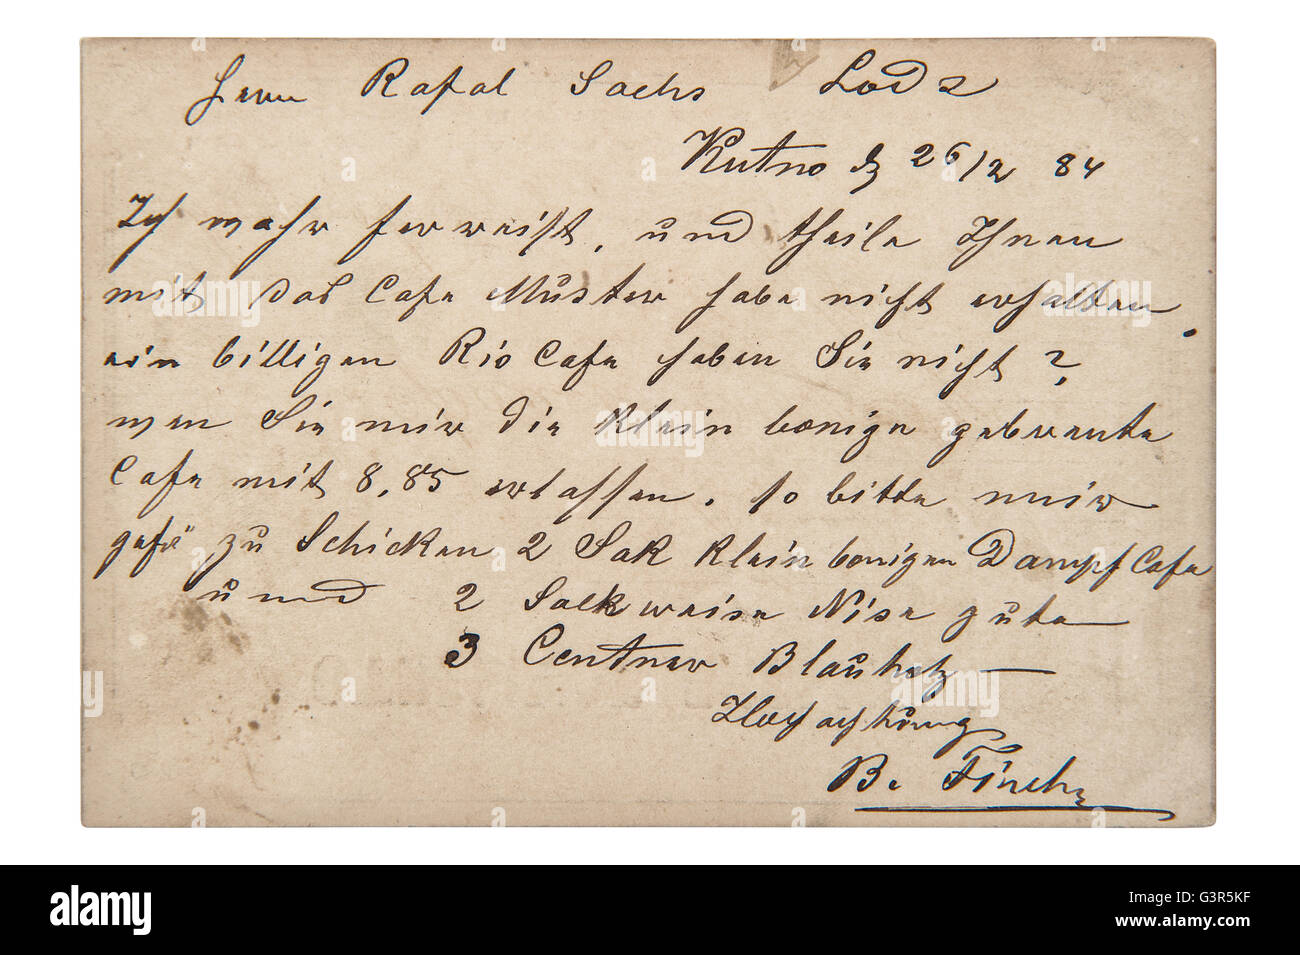 Herrn Rafal Sachs Lodz
Kutno d 26/2 84
Ich war verreist, und theile Ihnen
mit das Cafe Muster habe nicht erhalten.
ein billigen Rio Cafe haben Sie nicht?
wen Sie mir die klein bonige gebrante
Cafe mit 8,85 erlassen. so bitte mir
gefä zu Schicken 2 Sak klein bonigen Dampf Cafe
und 2 Sack weise Nise gute
3 Centner Blauholz —
Hochachtung
B.
a alamy stock photo
alamy
Image ID: G3R5KF
www.alamy.com